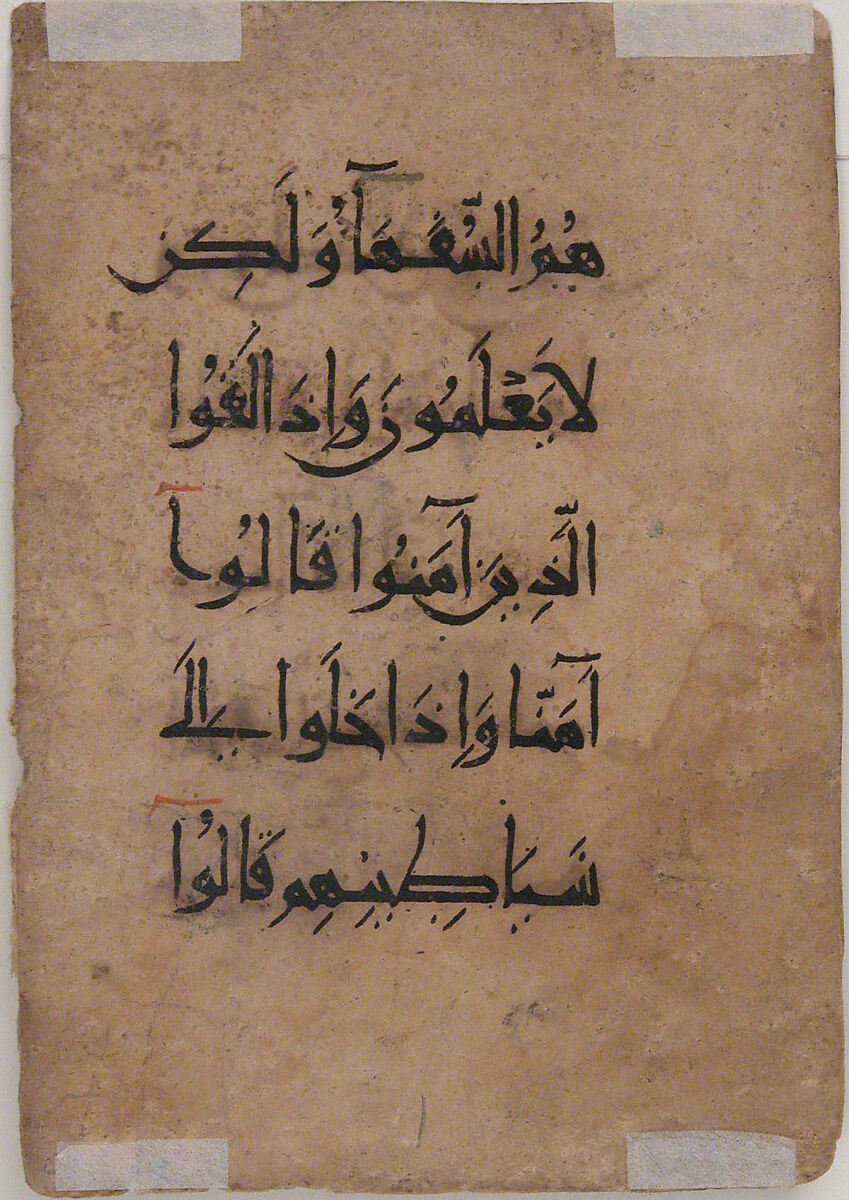 هُمُ السُّفَهَآءُ وَلَكِن
لَا يَعْلَمُونَ وَإِذَا لَقُوا
الَّذِينَ آمَنُوا قَالُوآ
آمَنَّا وَإِذَا خَلَوا إِلَى
شَيَاطِينِهِم قَالُوآ